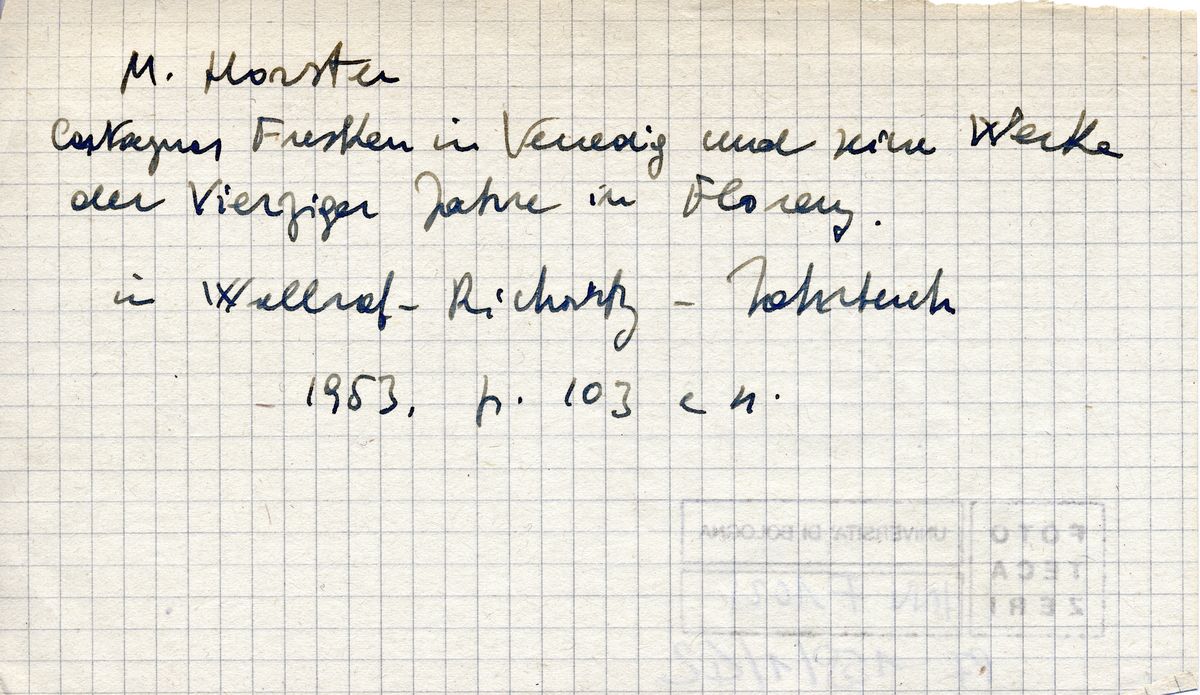 M. Horster
Castagnos Fresken in Venedig und seine Werke
der Vierziger Jahre in Florenz.
in Wallraf-Richartz - Jahrbuch
1953. p. 103 e n.
FOTO
TECA
ZERI
UNIVERSITA' DI BOLOGNA
INV. F